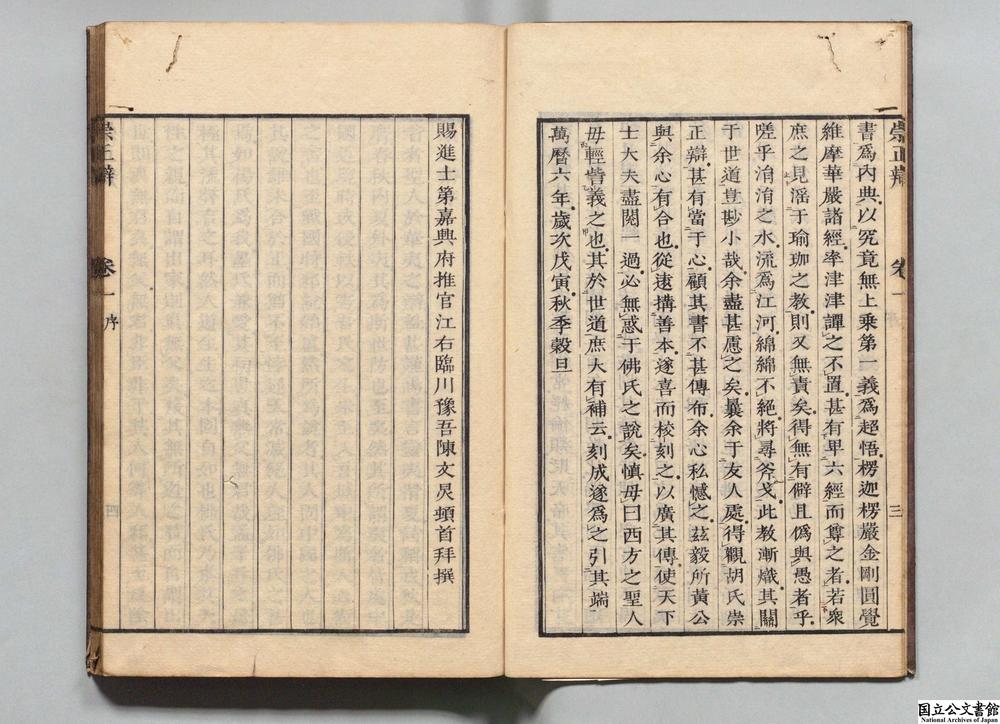 崇正辯 卷一 序 三
書爲內典以究竟無上乘第一義爲超悟楞迦楞嚴金剛圓覺
維摩華嚴諸經率津津譚之不置甚有卑六經而尊之者若衆
庶之見滛于瑜珈之教則又無責矣得無有僻且僞與愚者乎
嗟乎涓涓之水流爲江河綿綿不絕將尋斧戈此教漸熾其關
于世道豈尠小哉余盡甚慮之矣曩余于友人處得觀胡氏崇
正辯甚有當于心顧其書不甚傳布余心私憾之茲毅所黃公
與余心有合也從遠搆善本遂喜而校刻之以廣其傳使天下
士大夫盡閱一過必無惑于佛氏之說矣慎毋曰西方之聖人
毋輕訾議之也其於世道庶大有補云刻成遂爲之引其端
萬曆六年歲次戊寅秋季穀旦
賜進士第嘉興府推官江右臨川豫吾陳文炅頓首拜撰
崇正辯 卷一 序 四
国立公文書館
National Archives of Japan